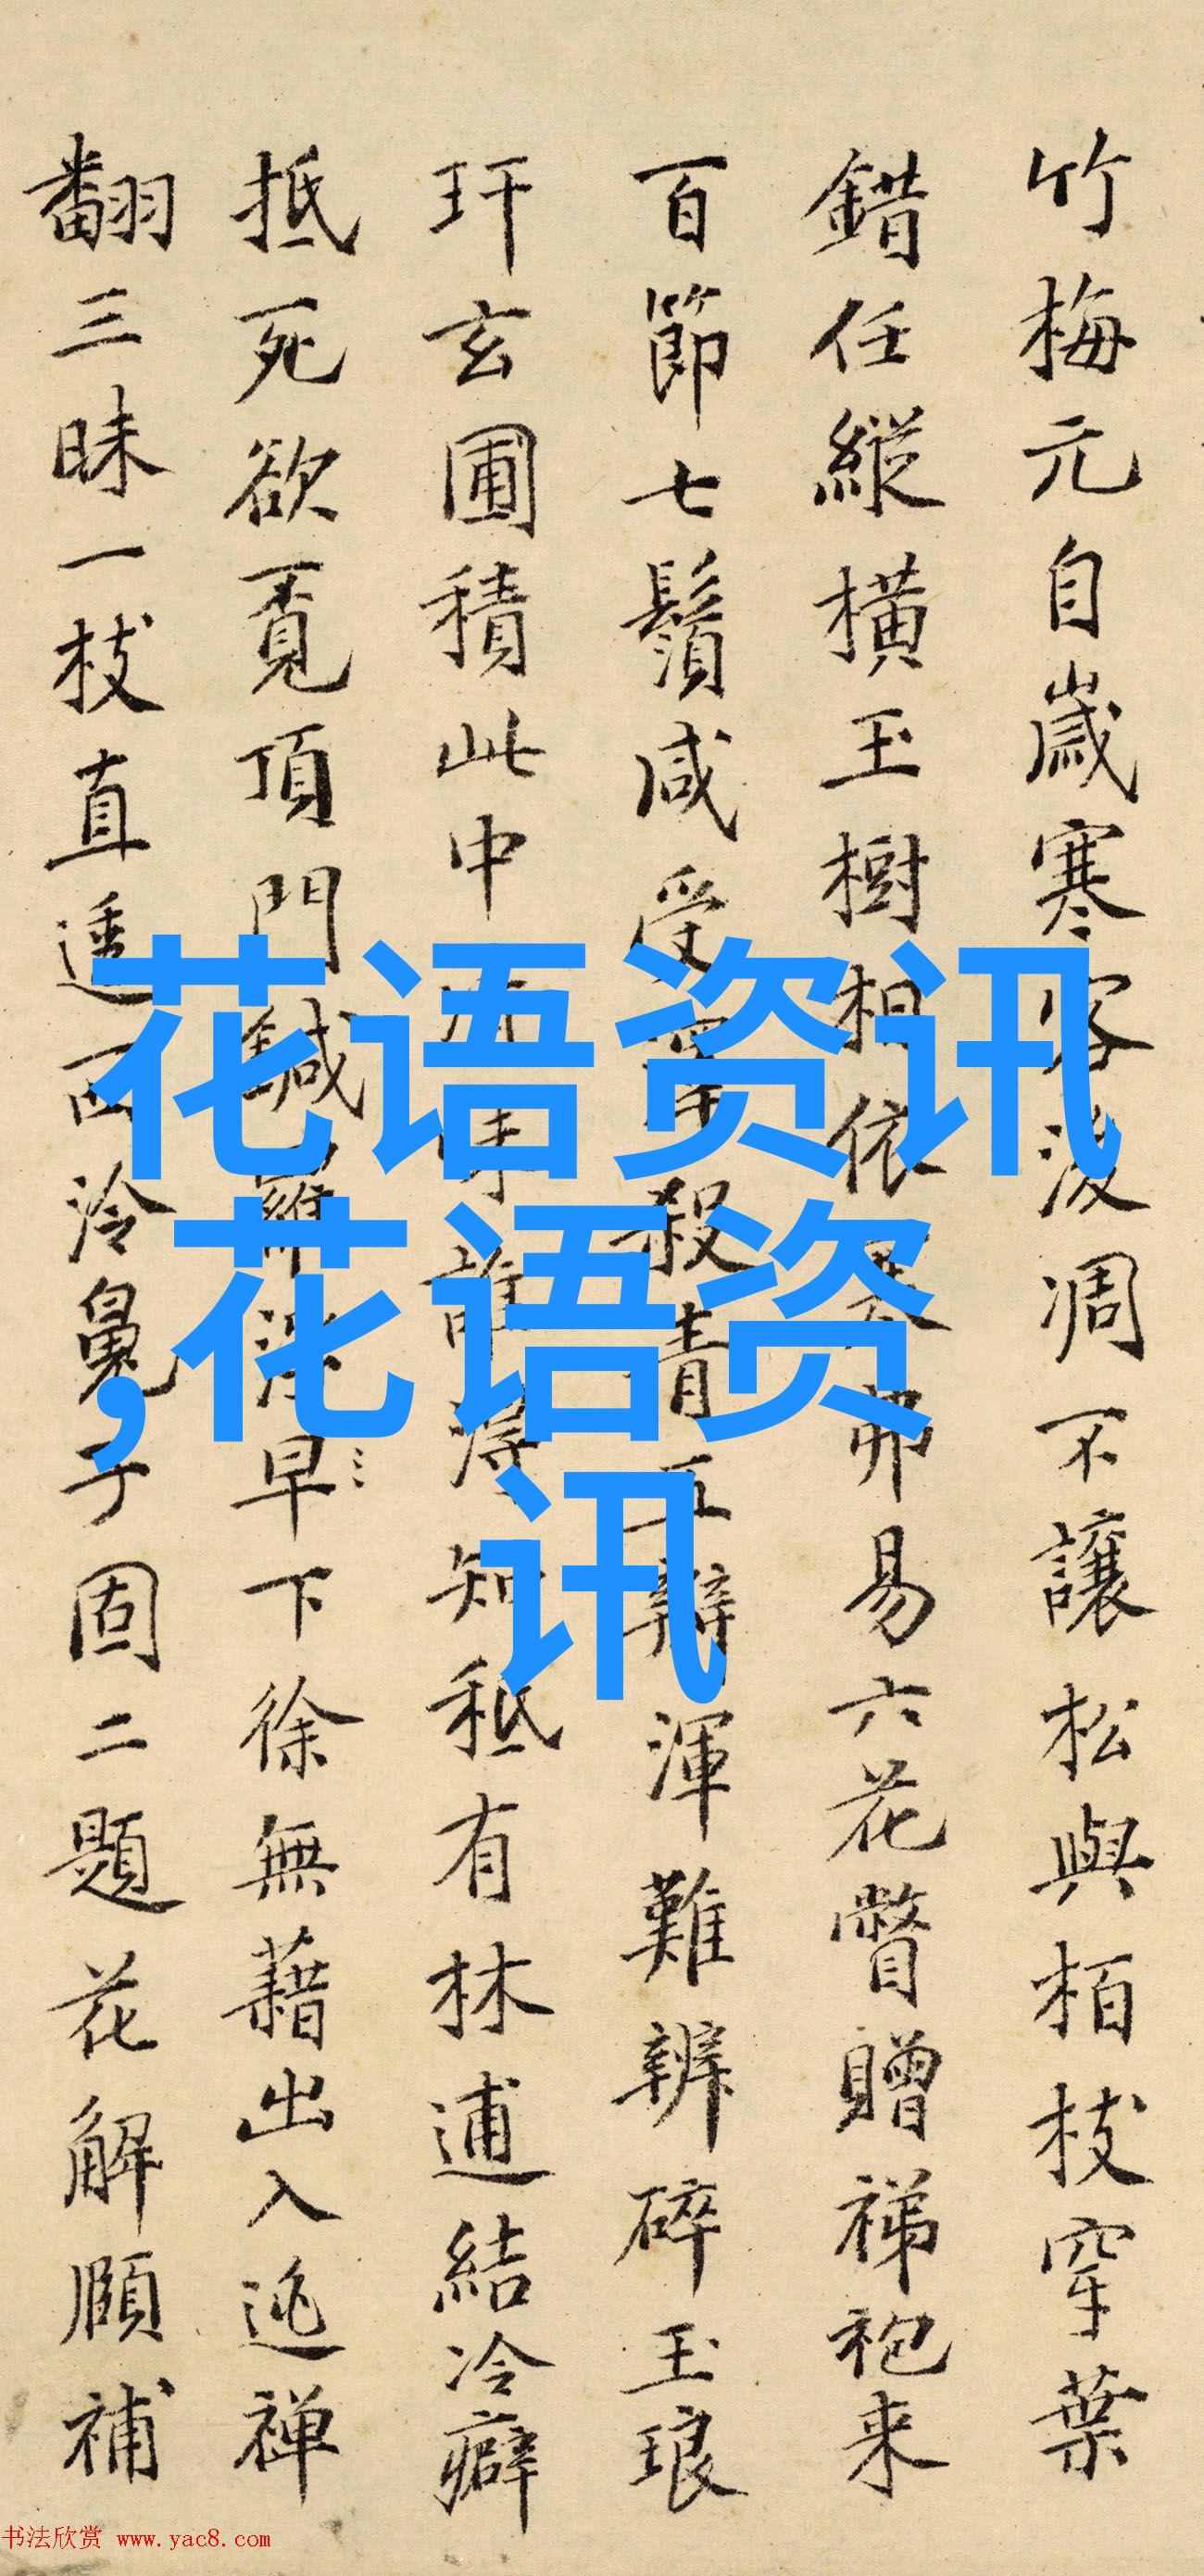 竹梅元自歲寒客後凋不讓松與栢枝穿葉
錯任縱橫玉樹相依易六花瞥贈祶袍来
百節七鬚咸受殺青五辦渾難辨碎玉琅
玕玄圃積此中誰得知秪有林逋結冷癖
抵死欲覔頂門鍼羅浮早下徐無藉出入逃禅
翻三昧一枝直透西泠鼻子固二題花解頤補
花语资讯
,花语资
讯
书法欣赏 www.yac8.com